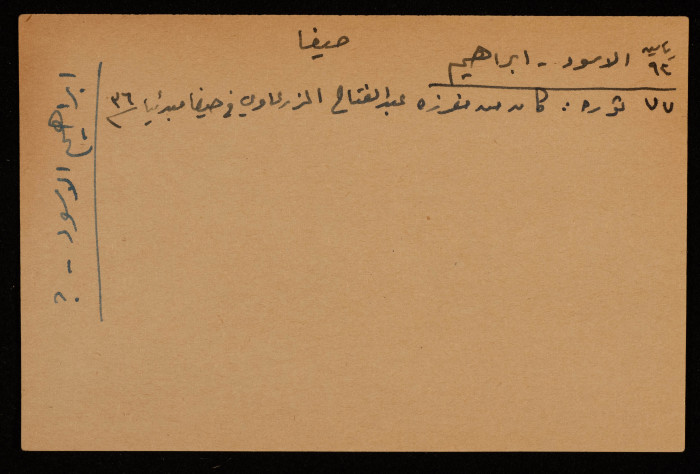 حيفا
ياسين
٩٢
الاسود - ابراهيم
٧٧ ثوره : كان من مفرزه عبد الفتاح المزرعاوي في حيفا مبدئيا ٣٦
ابراهيم الاسود - ؟